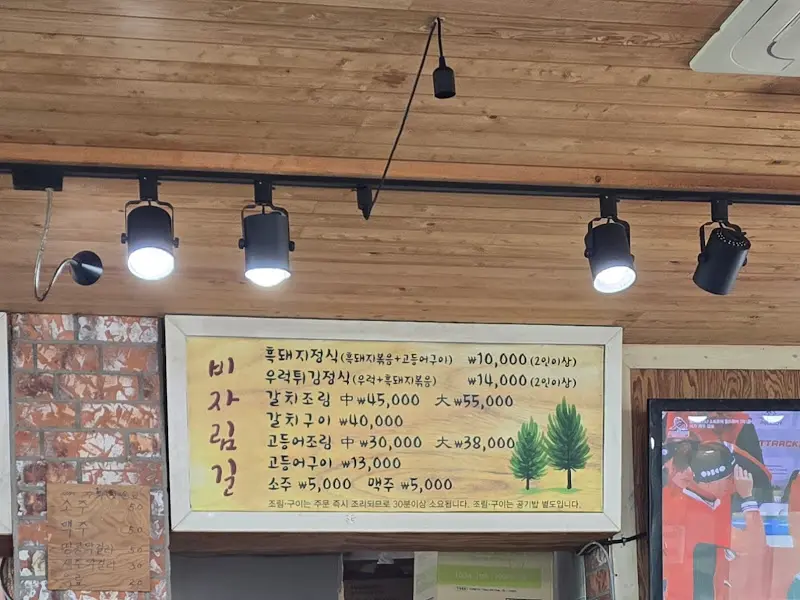 비자림길
흑돼지정식(흑돼지볶음+고등어구이) ₩10,000 (2인이상)
우럭튀김정식(우럭+흑돼지볶음) ₩14,000 (2인이상)
갈치조림 中 ₩45,000 大 ₩55,000
갈치구이 ₩40,000
고등어조림 中 ₩30,000 大 ₩38,000
고등어구이 ₩13,000
소주 ₩5,000 맥주 ₩5,000
조림·구이는 주문 즉시 조리되므로 30분이상 소요됩니다. 조림·구이는 공기밥 별도입니다.
소주 50
맥주 50
50
30
TTRACK